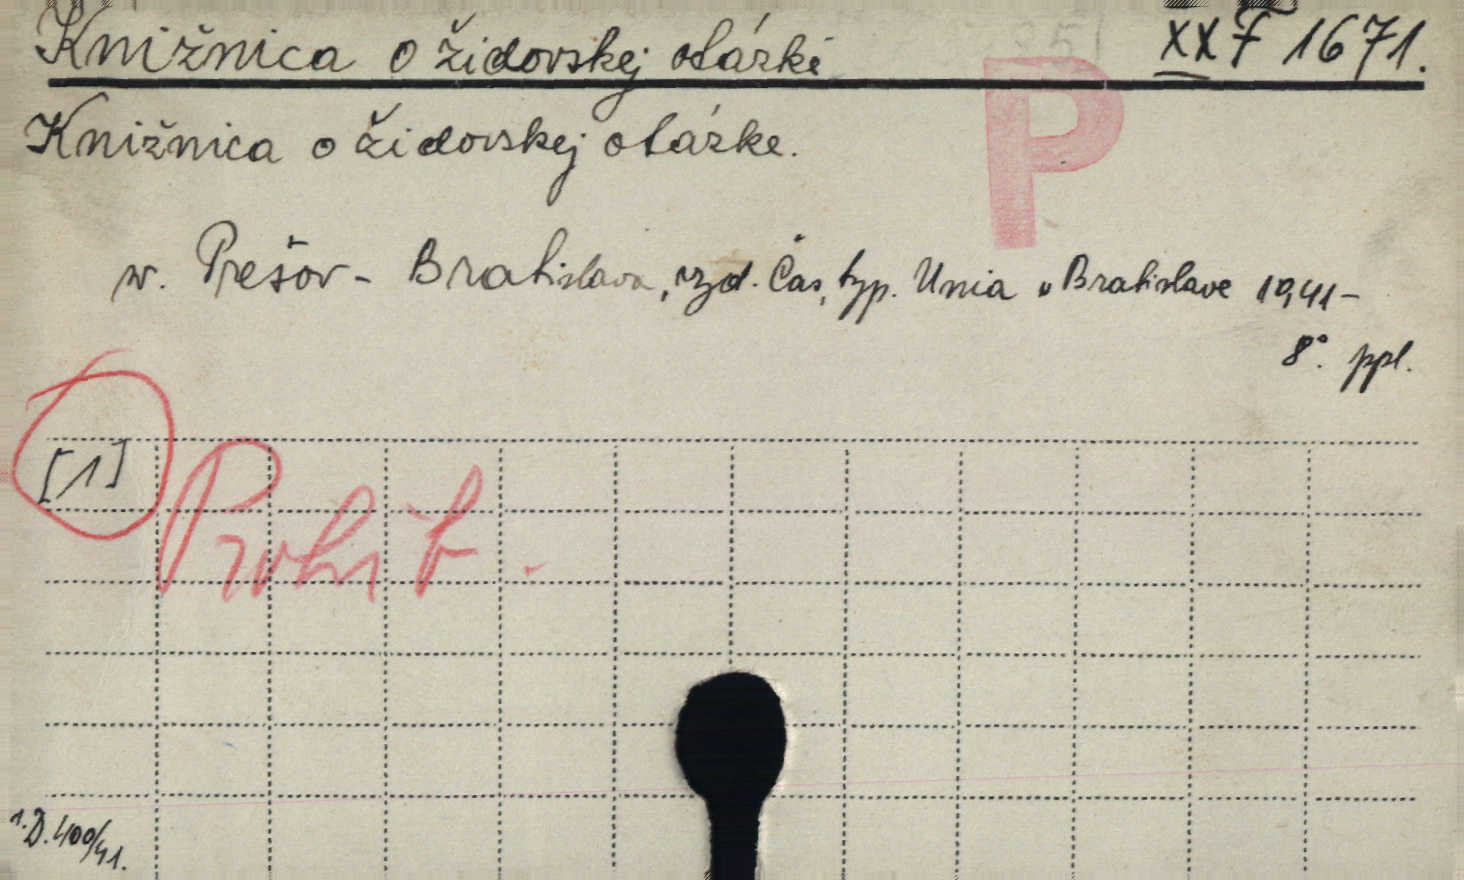 Knižnica o židovskej otázke XX F 1671.
P
Knižnica o židovskej otázke.
v. Prešov - Bratislava, vyd. Čas, typ. Unia v Bratislave 1941-
8°. ppl.
[1]
Prohib.
1.D.400/41.